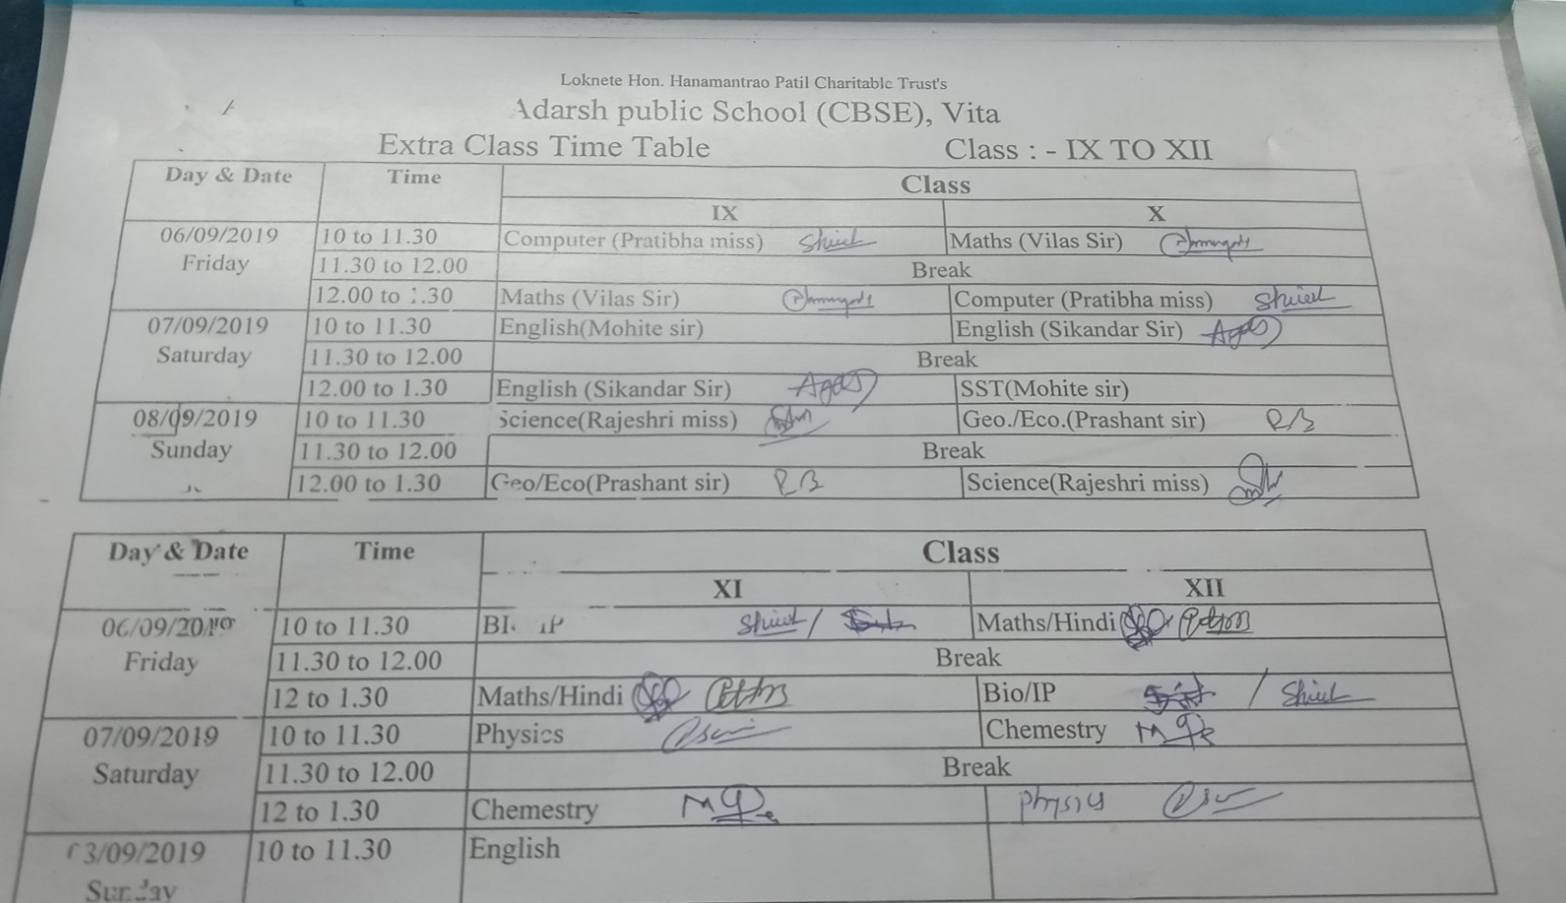 Loknete Hon. Hanamantrao Patil Charitable Trust's
Adarsh public School (CBSE), Vita
Extra Class Time Table Class : - IX TO XII
Day & Date Time Class
IX X
06/09/2019 10 to 11.30 Computer (Pratibha miss) Maths (Vilas Sir)
Friday 11.30 to 12.00 Break
12.00 to 1.30 Maths (Vilas Sir) Computer (Pratibha miss)
07/09/2019 10 to 11.30 English(Mohite sir) English (Sikandar Sir)
Saturday 11.30 to 12.00 Break
12.00 to 1.30 English (Sikandar Sir) SST(Mohite sir)
08/09/2019 10 to 11.30 Science(Rajeshri miss) Geo./Eco.(Prashant sir) RB
Sunday 11.30 to 12.00 Break
12.00 to 1.30 Geo/Eco(Prashant sir) RB Science(Rajeshri miss)
Day & Date Time Class
XI XII
06/09/2019 10 to 11.30 Maths/Hindi
Friday 11.30 to 12.00 Break
12 to 1.30 Maths/Hindi Bio/IP
07/09/2019 10 to 11.30 Physics Chemestry
Saturday 11.30 to 12.00 Break
12 to 1.30 Chemestry Physics
/09/2019 10 to 11.30 English
Sunday